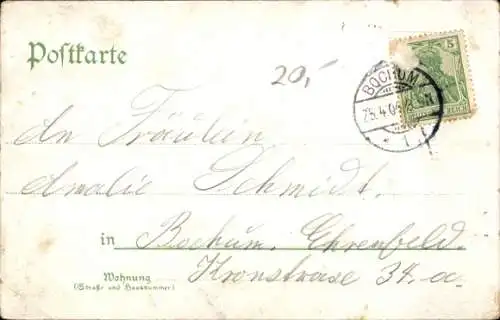 Postkarte
20,-
BOCHUM
25.4.0
5
REICH
An Fräulein
Amalie Schmidt.
in Bochum. Ehrenfeld.
Wohnung
(Straße und Hausnummer)
Kronstrase 34. a.